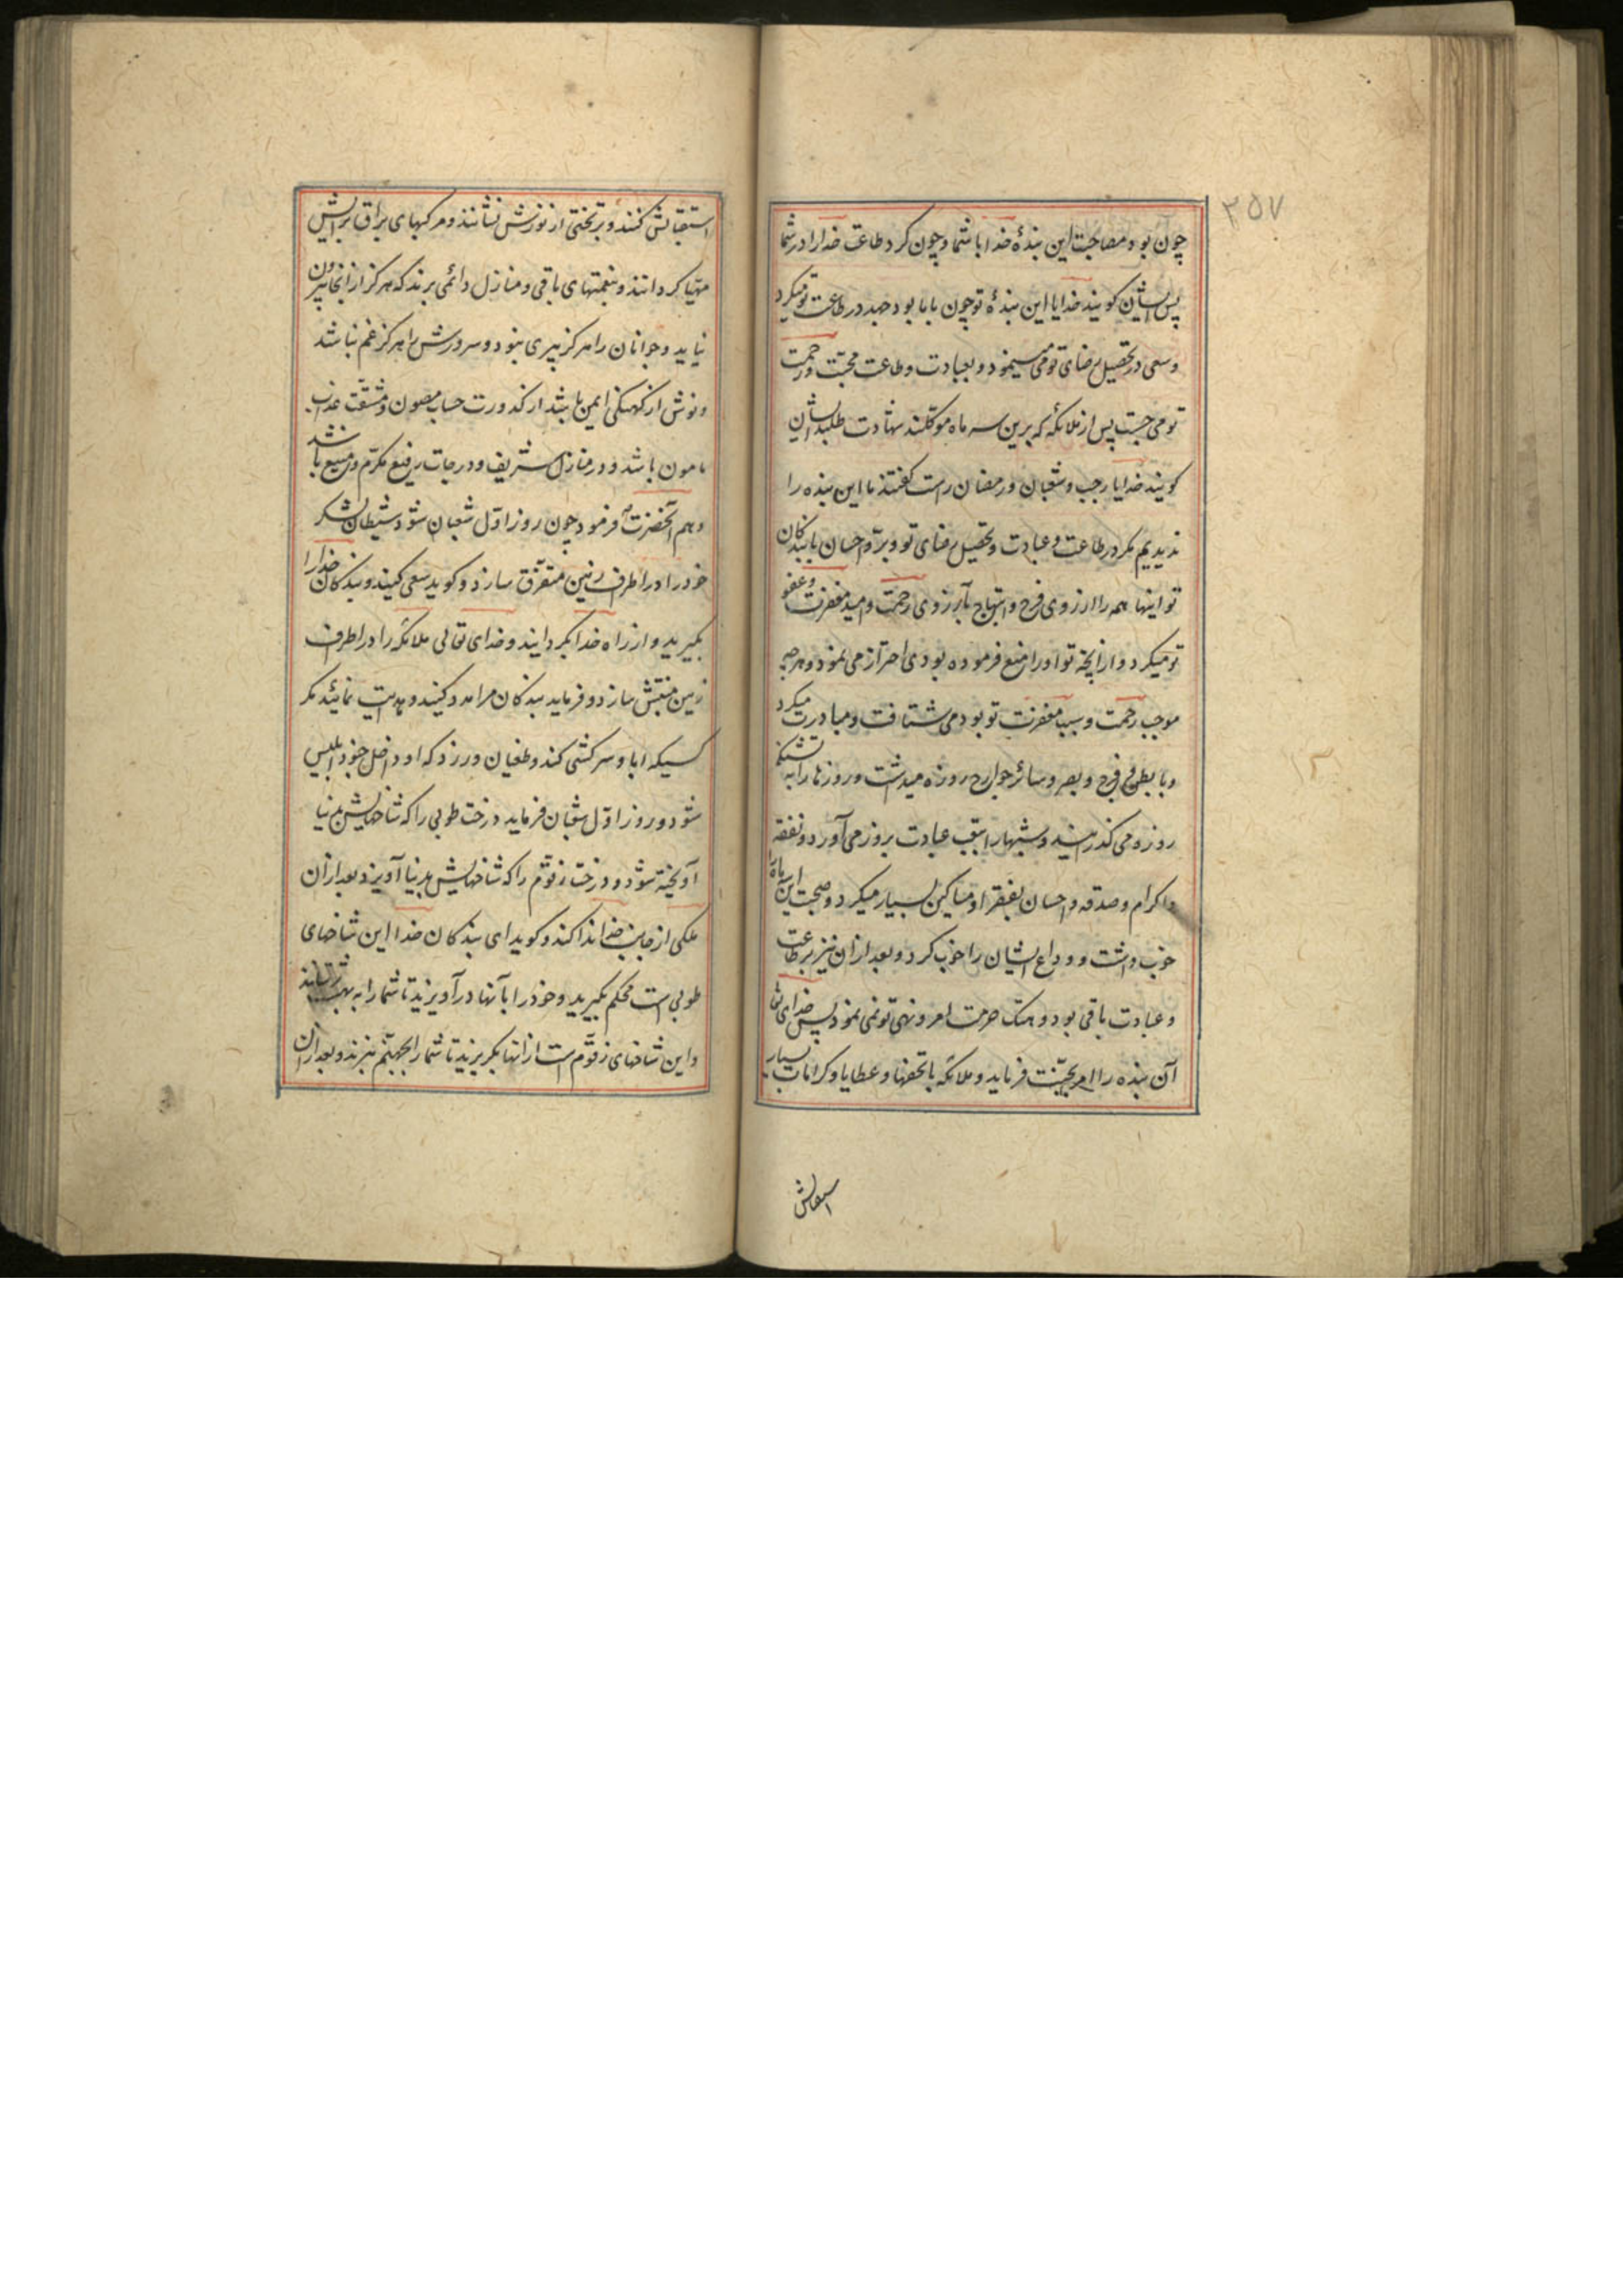 ۳۵۷
چون بود مصاحبت این بندهٔ خدا با شما و چون کرد طاعت خدا را در شما
پس ایشان کویند خدایا این بندهٔ تو چون با ما بود جهد در طاعت تو میکرد
و سعی در تحصیل رضای تو می نمود و بعبادت و طاعت محبّت و رحمت
تو می جست پس از ملائکهٔ که برین سه ماه موکلند شهادت طلبد ایشان
کویند خدایا رجب و شعبان و رمضان راست کفتند ما این بنده را
ندیدیم مکر در طاعت و عبادت و تحصیل رضای تو و برّ و احسان با بندکان
تو اینها همه را ارزوی فرح و ابتهاج بآرزوی رحمت و امید مغفرت و عفو
تو میکرد و از آنچه تو او را منع فرموده بودی احتراز می نمود و بهرچه
موجب رحمت و سبب مغفرت تو بود می شتافت و مبادرت میکرد
و با بطن و فرج و بصر و سائر جوارح روزه میداشت و روزها را به تشنکی
روزه می کذرانید و شبهارا بتعب عبادت بروز می آورد و نفقه
و اکرام و صدقه و احسان بفقرا و مساکین بسیار میکرد و صحبت این ماه را
خوب داشت و وداع ایشان را خوب کرد و بعد از ان نیز بر طاعت
و عبادت باقی بود و هتک حرمت امر و نهی تو نمی نمود پس خدای تعا
آن بنده را امر بجنّت فرماید و ملائکه با تحفها و عطایا و کرامات بسیار
استقبالش
استقبالش کنند و بر تختی از نورش نشانند و مرکبهای براق برایش
مهیّا کردانند و بنعمتهای باقی و منازل دائمی برند که هرکز از انجا بیرون
نیاید و جوانان را هرکز پیری نبود و سرورش را هرکز غم نباشد
و نوش از کهنکی ایمن باشد از کدورت حساب مصون و مشقّت عذاب
مامون باشد و در منازل شریف و درجات رفیع مکرّم و منیع باشد
و هم آنحضرت فرمود چون روز اوّل شعبان شود شیطان لشکر
خود را در اطراف زمین متفرّق سازد و کوید سعی کنید و بندکان خدا را
بکیرید و از راه خدا بکردانید و خدای تعالی ملائکه را در اطراف
زمین منتشر سازد و فرماید بندکان مرا مدد کنید و هدایت نمائید مکر
کسیکه ابا و سرکشی کند و طغیان ورزد که او داخل جنود ابلیس
شود و روز اوّل شعبان فرماید درخت طوبی را که شاخهایش بدنیا
آویخته شود و درخت زقّوم را که شاخهایش بدنیا آویزد بعد از ان
ملکی از جانب خدا ندا کند و کوید ای بندکان خدا این شاخهای
طوبی است محکم بکیرید و خود را بآنها در آویزید تا شما را به بهشت رسانند
و این شاخهای زقّوم است از انها بکریزید تا شما را بجهنّم نبرند و بعد از ان